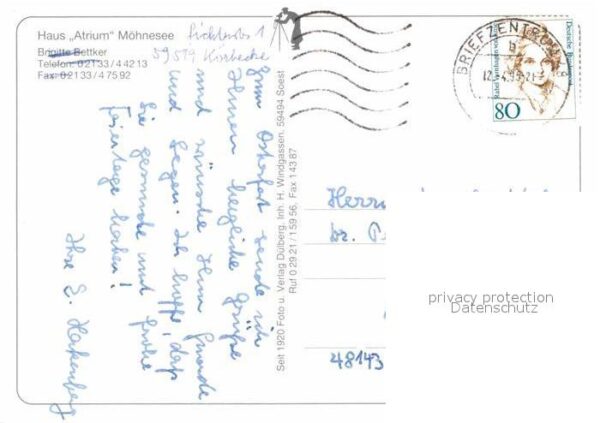 Haus „Atrium" Möhnesee
Brigitte Bettker
Telefon: 0 21 33 / 4 42 13
Fax: 0 21 33 / 4 75 92
1
59519 Körbecke
Zum Osterfest sende ich
Ihnen herzliche Grüße
und wünsche Ihnen Freude
und Segen. Ich hoffe, daß
Sie gesunde und frohe
Feiertage haben!
Ihre E. Hakenberg
Seit 1920 Foto u. Verlag Dülberg. Inh. H. Windgassen. 59494 Soest
Ruf 0 29 21 / 1 59 56, Fax 1 43 87
BRIEFZENTRUM
Deutsche Bundespost
80
Herrn
Dr.
48143
privacy protection
Datenschutz